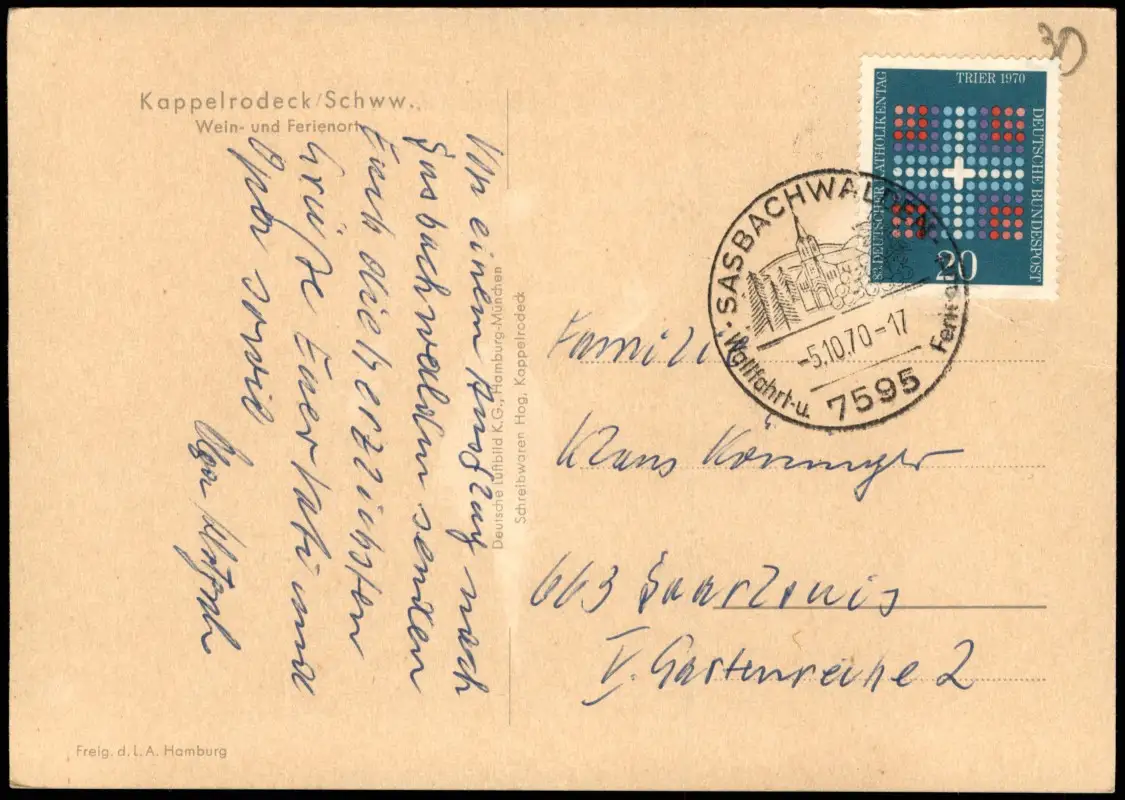 Kappelrodeck/Schww.
Wein- und Ferienort
Von einem Ausflug nach
Sasbachwalden senden
Euch die herzlichsten
Grüße Euer Vati und
Opa sowie
Freig. d. L. A. Hamburg
Deutsche Luftbild K.G., Hamburg-München
Schreibwaren Hog, Kappelrodeck
30
83. DEUTSCHER KATHOLIKENTAG
TRIER 1970
DEUTSCHE BUNDESPOST
20
SASBACHWALDEN
-5.10.70-17
Wallfahrt-u.
7595
Familie
Klaus
663 Saarlouis
V. Gartenreihe 2